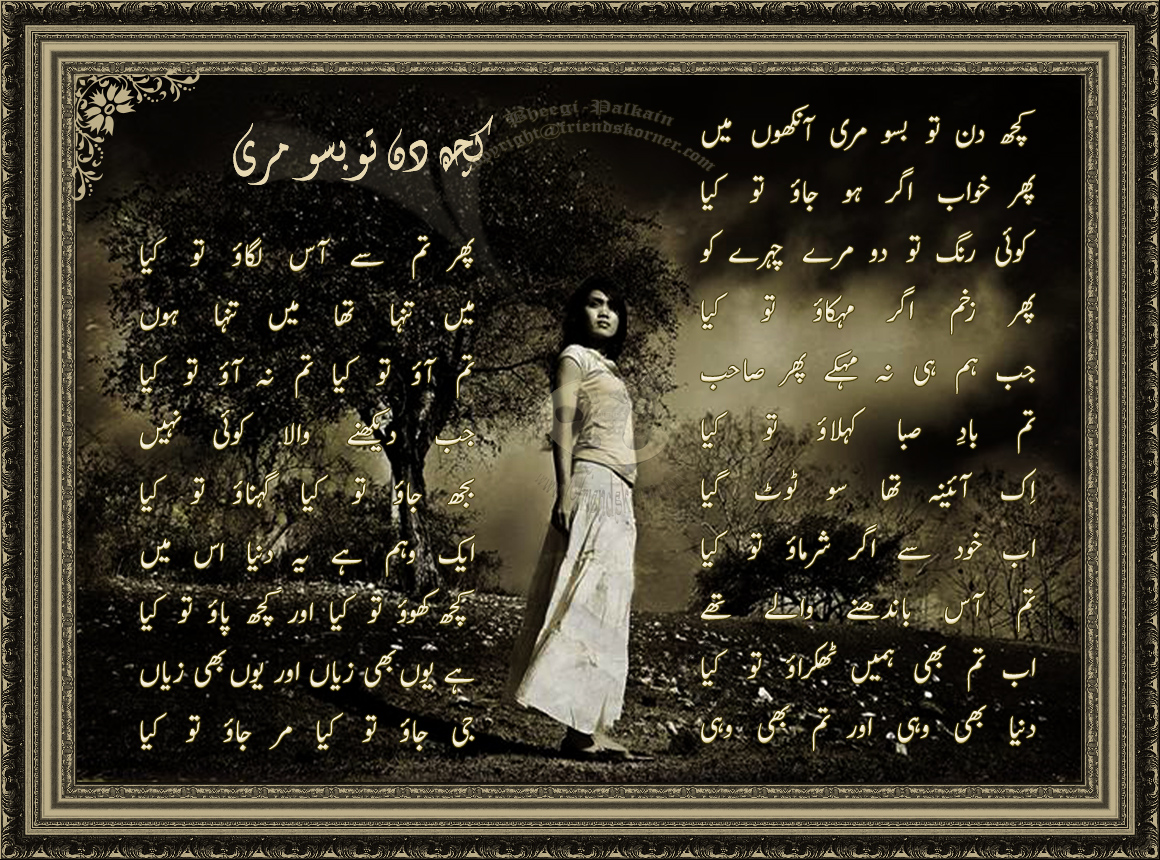 کچھ دن تو بسو مری
کچھ دن تو بسو مری آنکھوں میں
پھر خواب اگر ہو جاؤ تو کیا
کوئی رنگ تو دو مرے چہرے کو
پھر زخم اگر مہکاؤ تو کیا
جب ہم ہی نہ مہکے پھر صاحب
تم بادِ صبا کہلاؤ تو کیا
اِک آئینہ تھا سو ٹوٹ گیا
اب خود سے اگر شرماؤ تو کیا
تم آس باندھنے والے تھے
اب تم بھی ہمیں ٹھکراؤ تو کیا
دنیا بھی وہی اور تم بھی وہی
پھر تم سے آس لگاؤ تو کیا
میں تنہا تھا میں تنہا ہوں
تم آؤ تو کیا تم نہ آؤ تو کیا
جب دیکھنے والا کوئی نہیں
بجھ جاؤ تو کیا گہناؤ تو کیا
ایک وہم ہے یہ دنیا اس میں
کچھ کھوؤ تو کیا اور کچھ پاؤ تو کیا
ہے یوں بھی زیاں اور یوں بھی زیاں
جی جاؤ تو کیا مر جاؤ تو کیا
Bheegi-Palkain
right@friendskorner.com